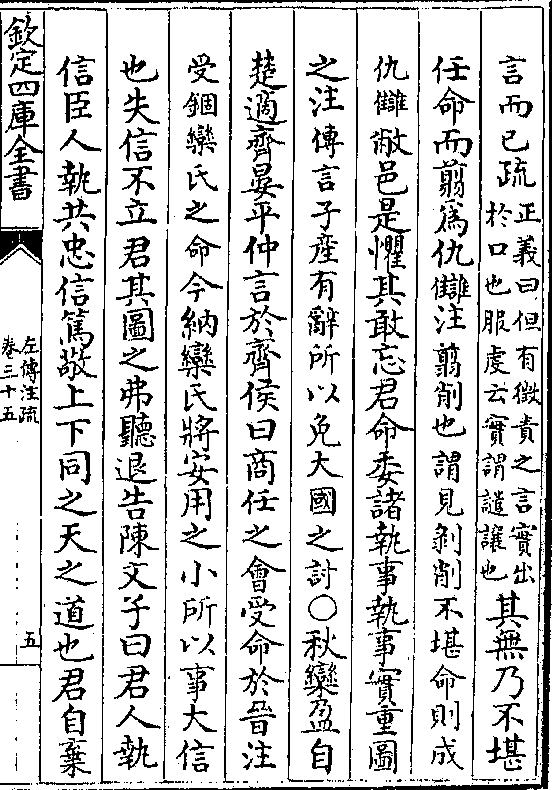 言而已疏正義曰但有徵責之言實出
於口也服虔云實謂譴讓也其無乃不堪
任命而翦為仇讎注翦削也謂見剝削不堪命則成
仇讎敝邑是懼其敢忘君命委諸執事執事實重圖
之注傳言子產有辭所以免大國之討○秋欒盈自
楚適齊晏平仲言於齊侯曰商任之會受命於晉注
受錮欒氏之命今納欒氏將安用之小所以事大信
也失信不立君其圖之弗聽退告陳文子曰君人執
信臣人執共忠信篤敬上下同之天之道也君自棄
欽定四庫全書
左傳注疏
卷三十五
五